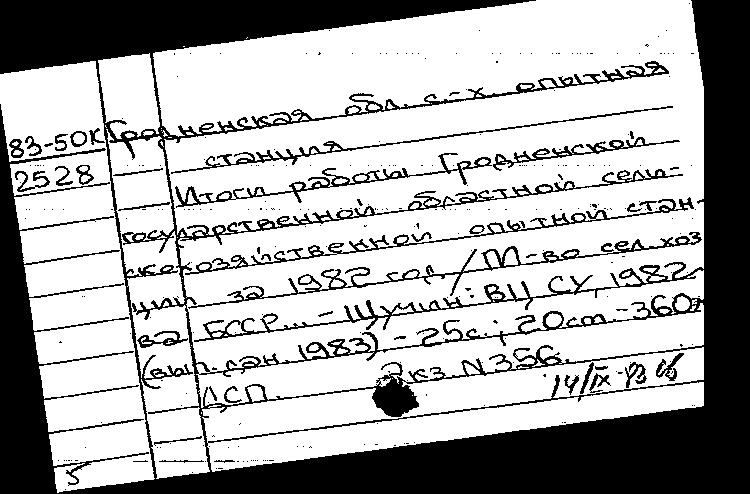 83-50К
2528
Гродненская обл. с.-х. опытная
станция
Итоги работы Гродненской
государственной областной сель-
скохозяйственной опытной стан-
ции за 1982 год / М-во сел. хоз
ва БССР... - Щучин: ВЦ СУ, 1982
(вып. дан. 1983). - 25с.; 20см. - 360
ДСП. Экз. N 356.
14/IX-83
5